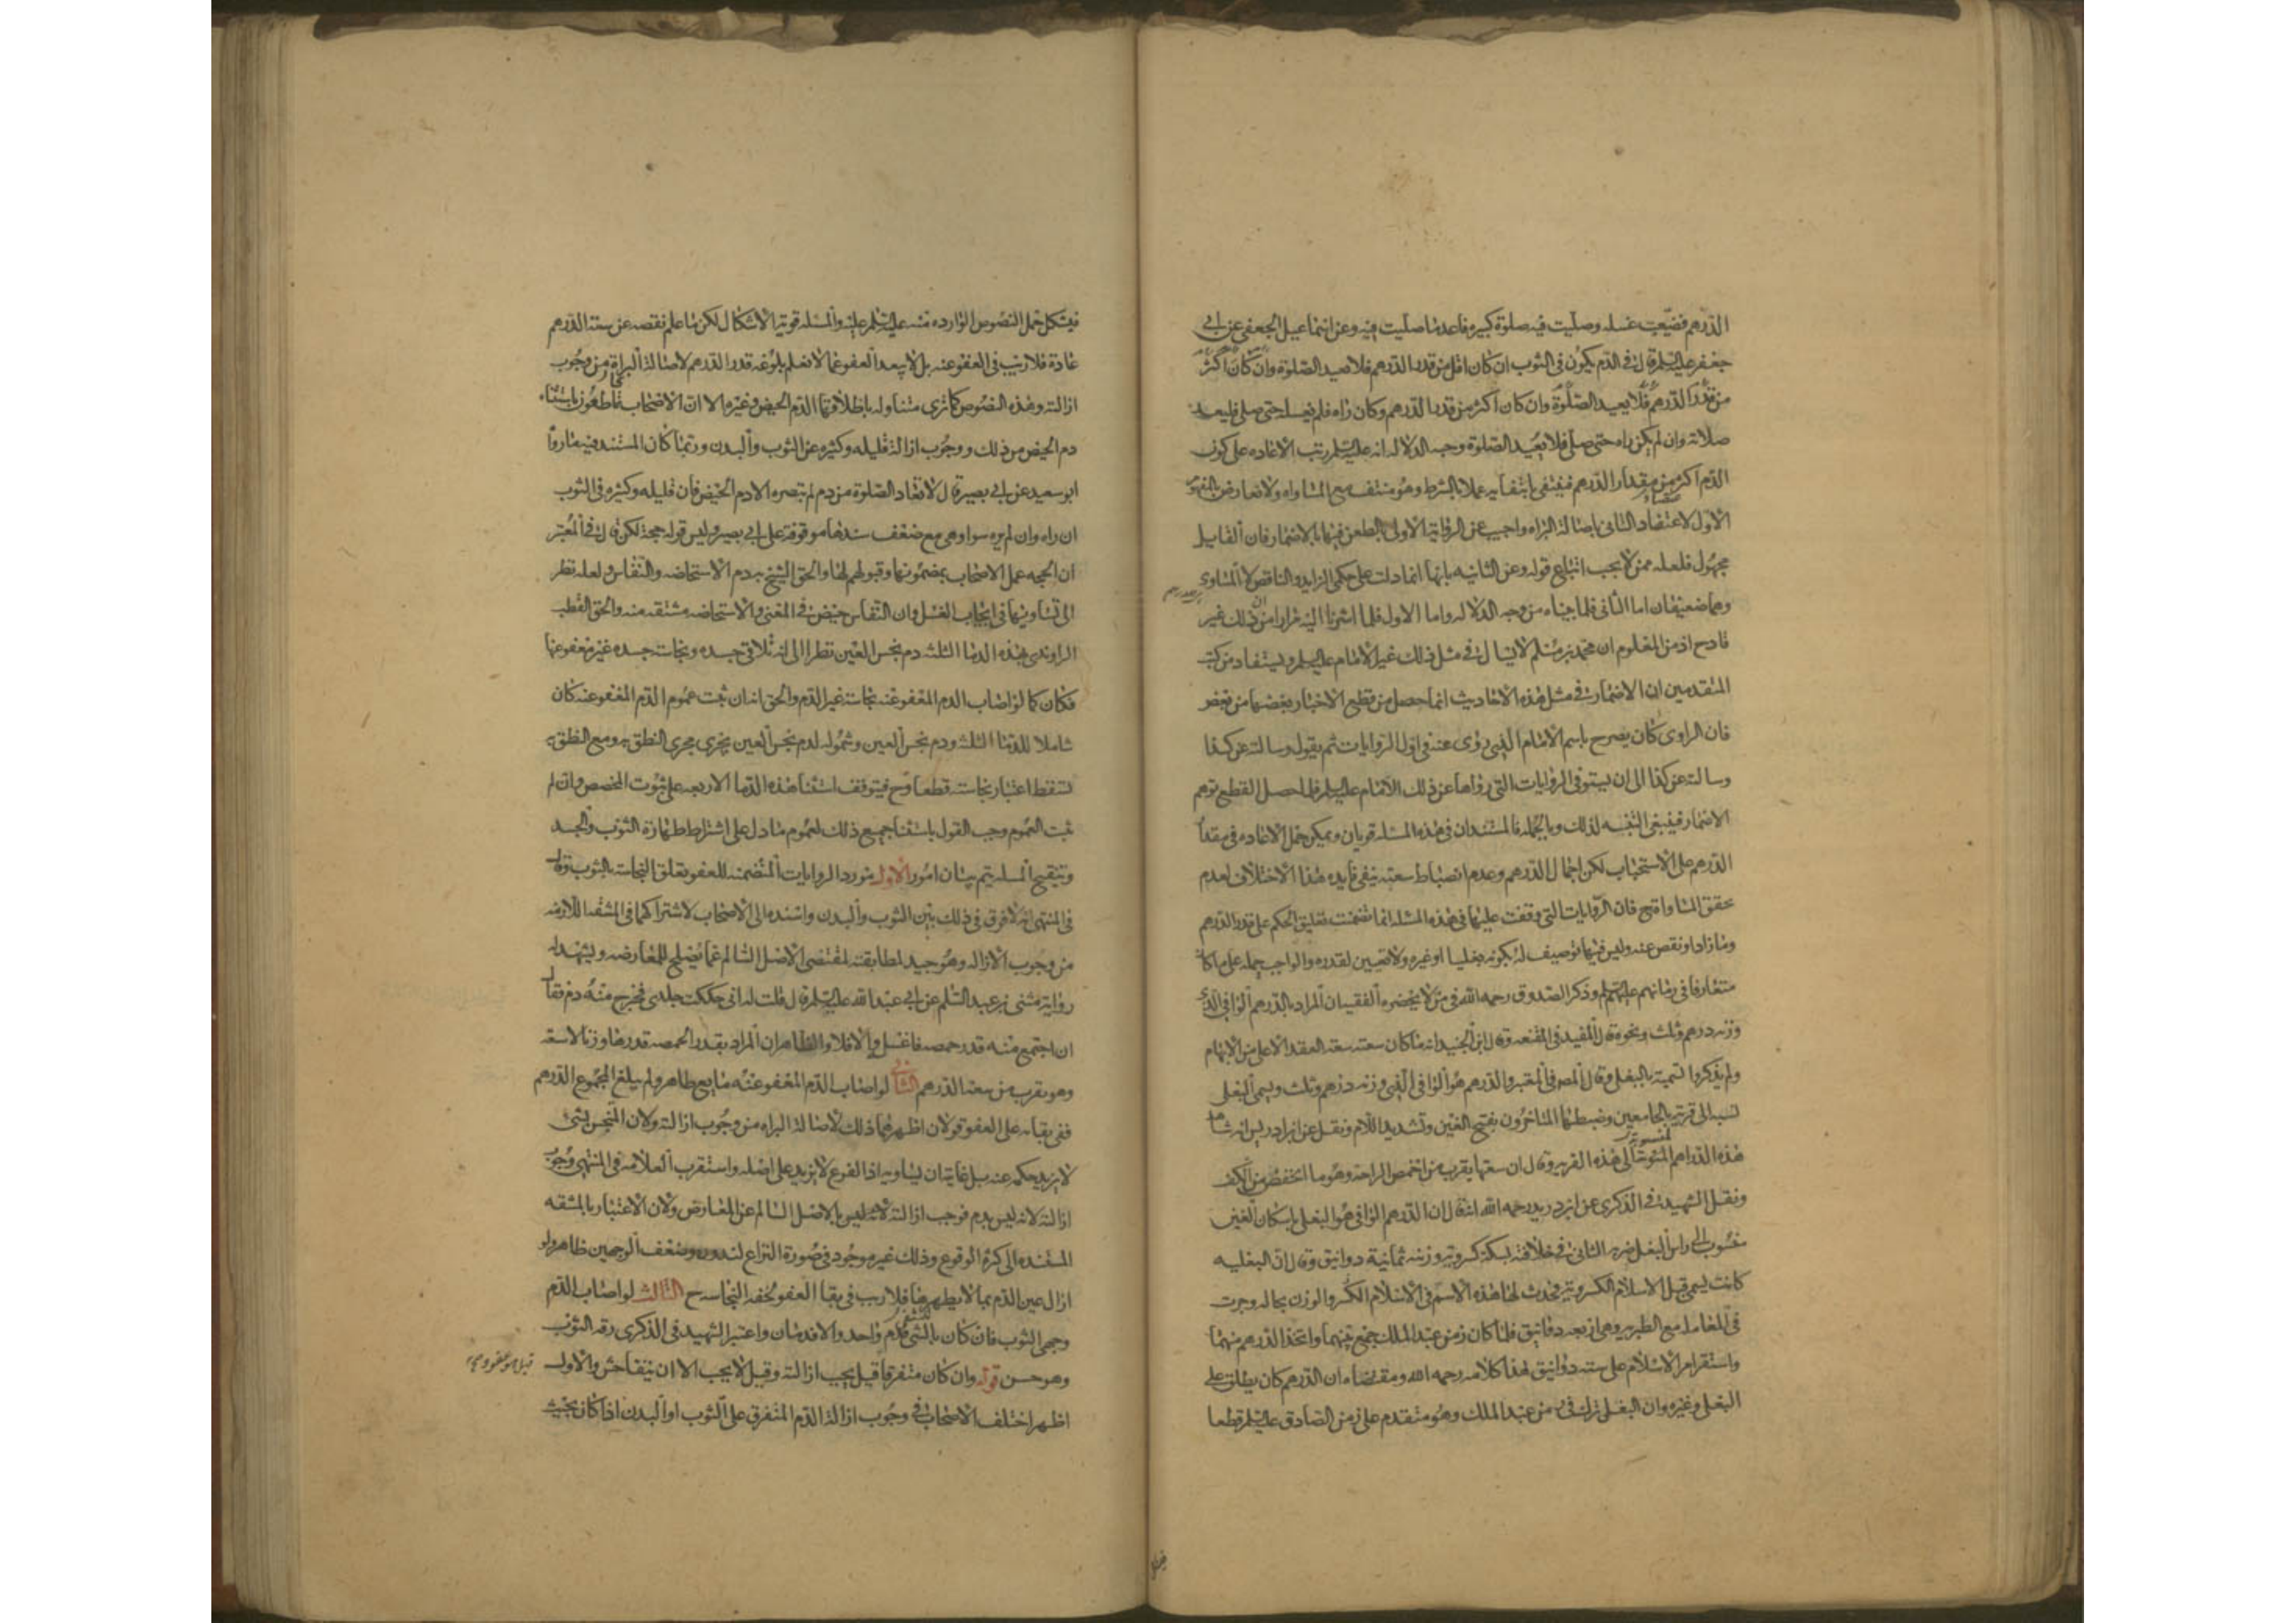 الدرهم فضيعت غسله وصليت فيه صلوة كبيره فاعد ما صليت فيه وعن اسماعيل الجعفي عن ابي
جعفر عليه السلم قال في الدم يكون في الثوب ان كان اقل من قدر الدرهم فلا يعيد الصلوة وان كان اكثر
من قدر الدرهم فلا يعيد الصلوة وان كان اكثر من قدر الدرهم وكان راه فلم يغسله حتى صلى فليعد
صلاته وان لم يكن راه حتى صلى فلا يعيد الصلوة وجه الدلاله انه عليه السلم رتب الاعاده على كون
الدم اكثر من مقدار الدرهم فينتفي بانتفائه عملا بالشرط وهو منتف مع المساواه ولا تعارض بالمفهوم
الاول لاعتضاد الثاني باصالة البراه واجيب عن الرواية الاولى بالطعن فيها بالاضمار فان القايل
مجهول فلعله ممن لا يجب اتباع قوله وعن الثانيه بانها انما دلت على حكمي الزايد والناقص لا المساوي
وهما ضعيفان اما الثاني فلما بيناه من وجه الدلاله واما الاول فلما اشرنا اليه مرارا من ان ذلك غير
قادح اذ من المعلوم ان محمد بن مسلم لا يسال في مثل ذلك غير الامام عليه السلم ويستفاد من كتب
المتقدمين ان الاضمار في مثل هذه الاحاديث انما حصل من قطع الاخبار بعضها من بعض
فان الراوي كان يصرح باسم الامام الذي روى عنه في اول الروايات ثم يقول وسالته عن كذا
وسالته عن كذا الى ان يستوفي الروايات التي رواها عن ذلك الامام عليه السلم فلما حصل القطع توهم
الاضمار فينبغي التنبه لذلك وبالجمله فالمستندان في هذه المسله قويان ويمكن حمل الاعاده في مقدار
الدرهم على الاستحباب لكن اجمال الدرهم وعدم انضباط سعته ينفي فايده هذا الاختلاف لعدم
تحقق المساواة ح فان الروايات التي وقفت عليها في هذه المسله انما تضمنت تعليق الحكم على قدر الدرهم
وما زاد او نقص عنه وليس فيها توصيف له بكونه بغليا او غيره ولا تعيين لقدره والواجب حمله على ما كان
متعارفا في زمانهم عليهم السلم وذكر الصدوق رحمه الله في من لا يحضره الفقيه ان المراد بالدرهم الوافي الذي
وزنه درهم وثلث ونحوه قال المفيد في المقنعه وقال ابن الجنيد انه ما كان سعته سعة العقد الاعلى من الابهام
ولم يذكروا تسمية بالبغلي وقال المص في المعتبر والدرهم هو الوافي الذي وزنه درهم وثلث ويسمى البغلي
نسبه الى قرية بالجامعين وضبطها المتاخرون بفتح الغين وتشديد اللام ونقل عن ابن ادريس انه شاهد
هذه الدراهم المنسوبة الى هذه القرية وقال ان سعتها يقرب من اخمص الراحة وهو ما انخفض من الكف
ونقل الشهيد في الذكرى عن ابن دريد رحمه الله انه قال ان الدرهم الوافي هو البغلي باسكان الغين
منسوب الى راس البغل ضربه الثاني في خلافته بسكة كسروية وزنه ثمانية دوانيق وقال ان البغليه
كانت يسمى قبل الاسلام الكسرويه فحدث لها هذه الاسم في الاسلام الكسر والوزن بحاله وجرت
في المعامله مع الطبريه وهي اربعه دوانيق فلما كان زمن عبد الملك جمع بينهما واتخذ الدرهم منهما
واستقر امر الاسلام على سته دوانيق هذا كلامه رحمه الله ومقتضاه ان الدرهم كان يطلق على
البغلي وغيره وان البغلي ترك في زمن عبد الملك وهو متقدم على زمن الصادق عليه السلم قطعا
فيشكل حمل النصوص الوارده منه عليه السلم عليه والمسله قوية الاشكال لكن ما علم نقصه عن سعة الدرهم
عادة فلا ريب في العفو عنه بل لا يبعد العفو عما لا نعلم بلوغه قدر الدرهم لاصالة البراة من وجوب
ازالته وهذه النصوص كما ترى متناوله باطلاقها الدم الحيض وغيره الا ان الاصحاب قاطعون باستثناء
دم الحيض من ذلك ووجوب ازالة قليله وكثيره عن الثوب والبدن وربما كان المستند فيه ما رواه
ابو سعيد عن ابي بصير قال لا تعاد الصلوة من دم لم تبصره الا دم الحيض فان قليله وكثيره في الثوب
ان راه وان لم يره سوا وهي مع ضعف سندها موقوفة على ابي بصير وليس قوله حجة لكن قال في المعتبر
ان الحجه عمل الاصحاب بمضمونها وقبولهم لها والحق الشيخ به دم الاستحاضه والنفاس ولعله نظر
الى تساويهما في ايجاب الغسل وان النفاس حيض في المعنى والاستحاضه مشتقه منه والحق القطب
الراوندي بهذه الدما الثلثه دم نجس العين نظرا الى انه تلاقي جسده ونجاسة جسده غير معفو عنها
فكان كما لو اصاب الدم المعفو عنه نجاسة غير الدم والحق انه ان ثبت عموم الدم المعفو عنه كان
شاملا للدما الثلثه ودم نجس العين وشموله لدم نجس العين يجري مجرى النطق به ومع النطق به
تسقط اعتبار نجاسته قطعا وح فيتوقف استثنا هذه الدما الاربعه على ثبوت المخصص وان لم
يثبت العموم وجب القول باستثنا جميع ذلك لعموم ما دل على اشتراط طهارة الثوب والجسد
وتنقيح المسله يتم ببيان امور الاول مورد الروايات المتضمنه للعفو تعلق النجاسة بالثوب وقال
في المنتهى انه لا فرق في ذلك بين الثوب والبدن واسنده الى الاصحاب لاشتراكهما في المشقه اللازمه
من وجوب الازاله وهو جيد لمطابقته لمقتضى الاصل السالم عما يصلح للمعارضه ويشهد له
رواية مثنى بن عبد السلم عن ابي عبد الله عليه السلم قال قلت له اني حككت جلدي فخرج منه دم فقال
ان اجتمع منه قدر حمصه فاغسله والا فلا والظاهر ان المراد بقدر الحمصه قدرها وزنا لا سعة
وهو يقرب من سعة الدرهم الثاني لو اصاب الدم المعفو عنه مايع طاهر ولم يبلغ المجموع الدرهم
ففي بقائه على العفو قولان اظهرهما ذلك لاصالة البراه من وجوب ازالته ولان المتنجس بشيء
لا يزيد حكمه عنه بل غايته ان يساويه اذ الفرع لا يزيد على اصله واستقرب العلامه في المنتهى وجوب
ازالته لانه ليس بدم فوجب ازالته بالاصل السالم عن المعارض ولان الاعتبار بالمشقه
المستنده الى كثرة الوقوع وذلك غير موجود في صورة النزاع لندوره وضعف الوجهين ظاهر ولو
ازال عين الدم بما لا يطهرها فلا ريب في بقا العفو لخفه النجاسه ح الثالث لو اصاب الدم
وجهي الثوب فان كان بالتفشي فدم واحد والا فدمان واعتبر الشهيد في الذكرى رقه الثوب
وهو حسن قوله وان كان متفرقا قيل يجب ازالته وقيل لا يجب الا ان يتفاحش والاول
قيل هو عفو
اظهر اختلف الاصحاب في وجوب ازالة الدم المتفرق على الثوب او البدن اذا كان بحيث